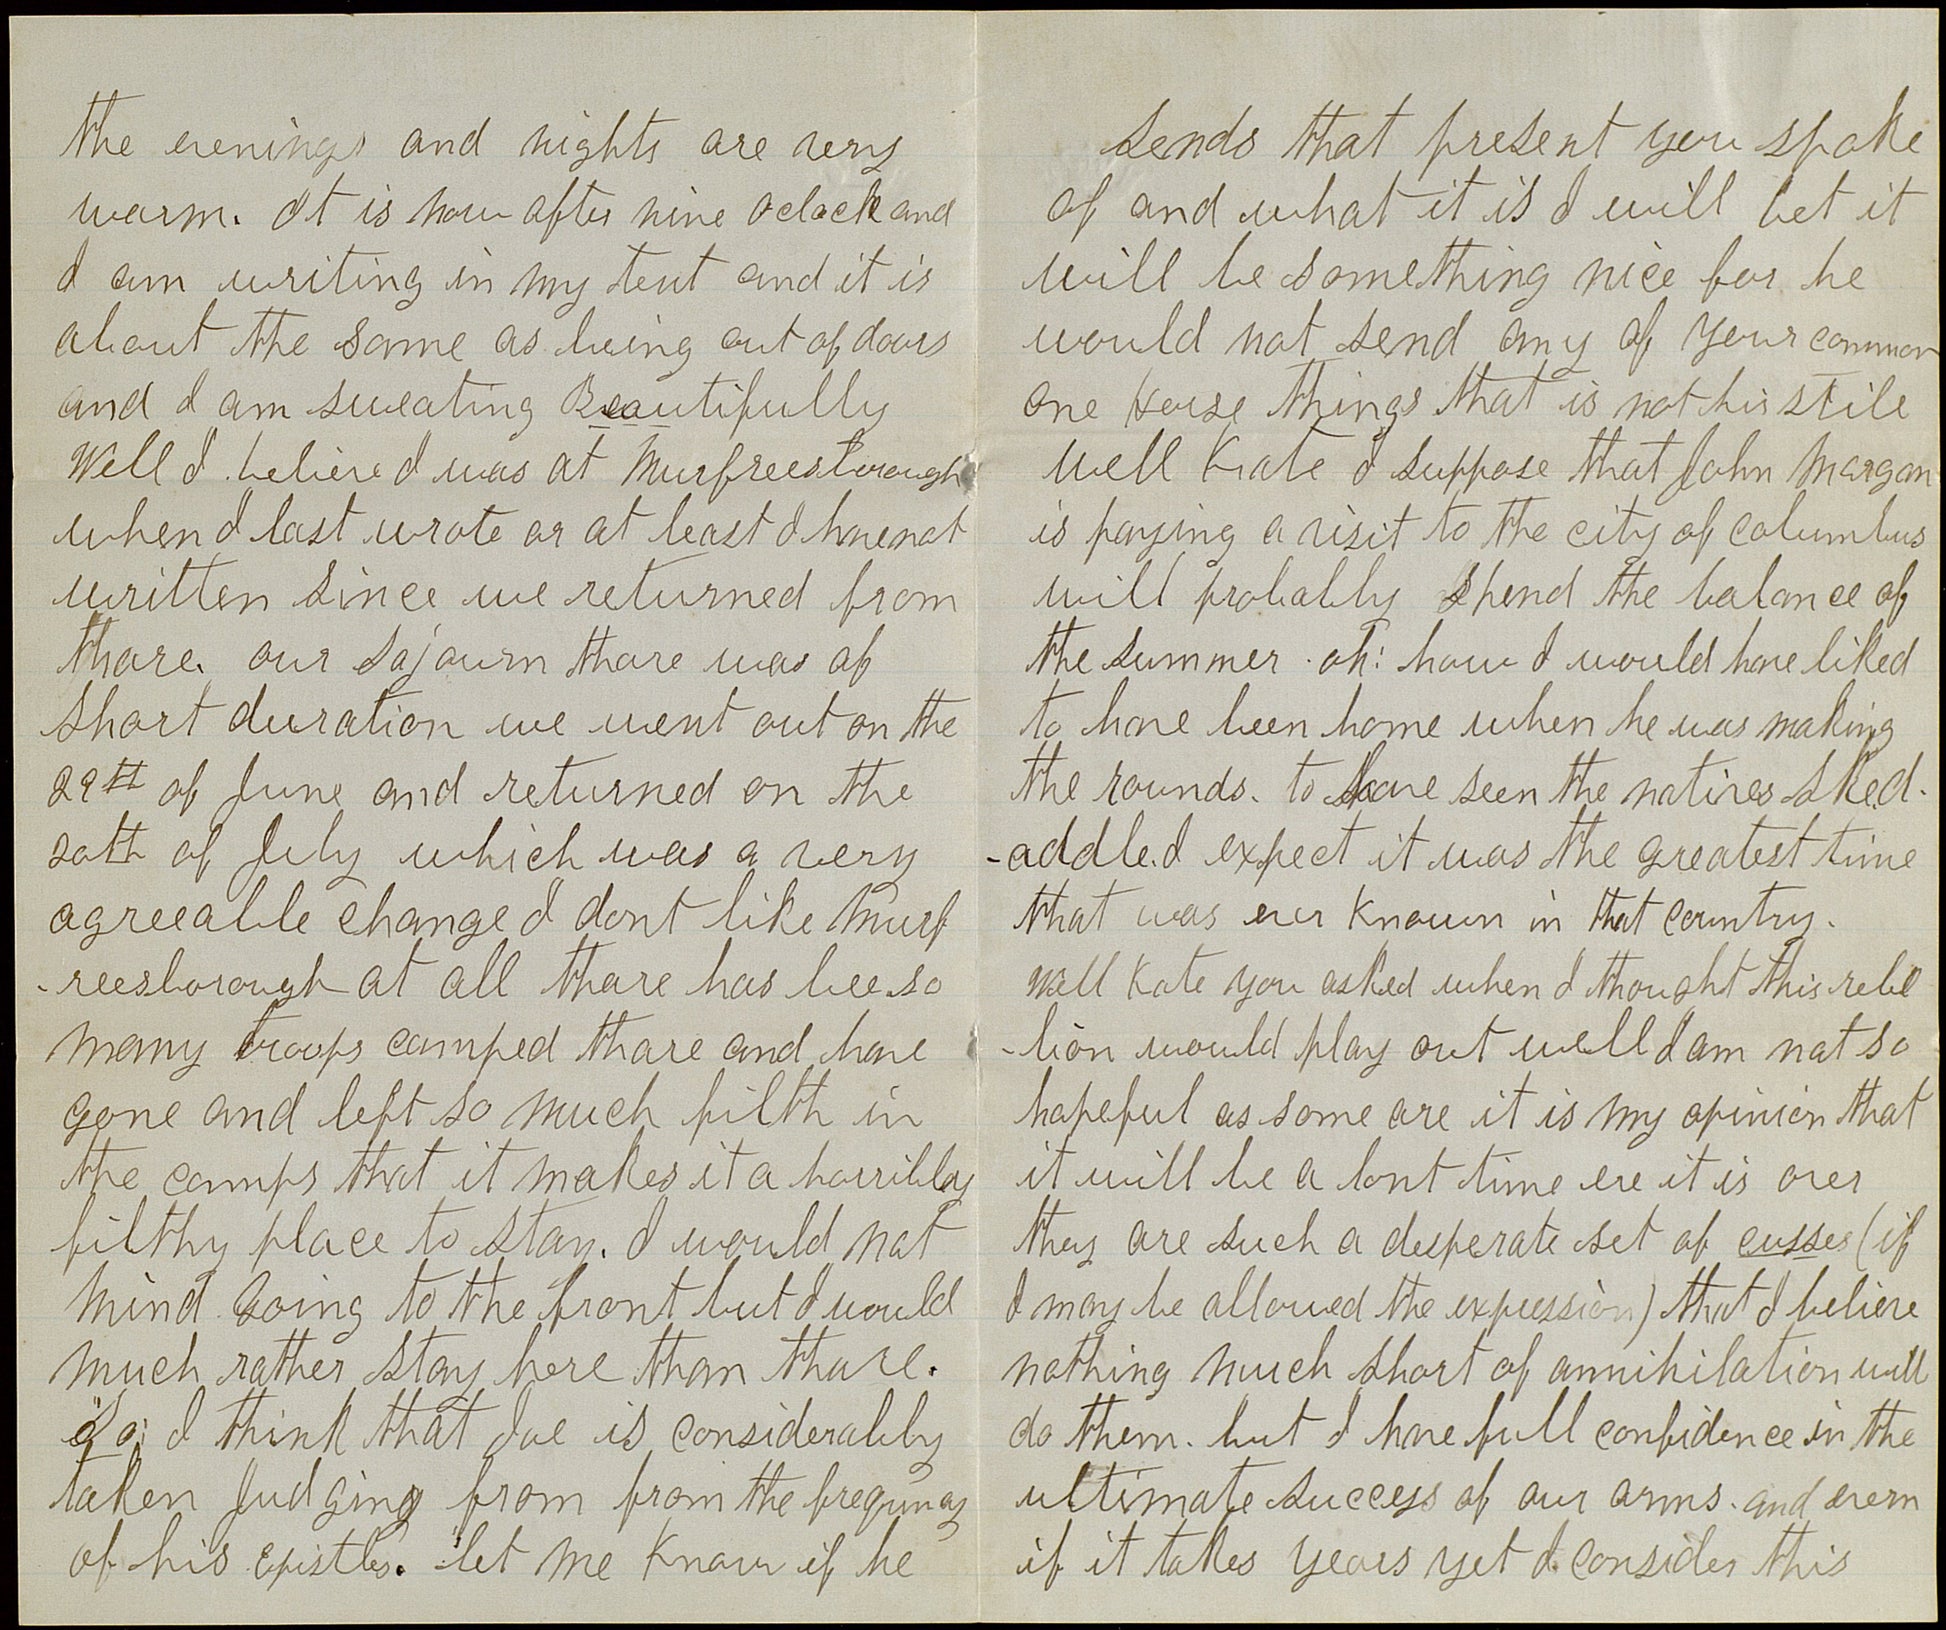 the evenings and nights are very
warm. It is now after nine oclock and
I am writing in my tent and it is
about the same as being out of doors
and I am sweating Beautifully
Well I believe I was at Murfreesborough
when I last wrote or at least I have not
written since we returned from
thare. our sojourn thare was of
short duration we went out on the
29th of June and returned on the
20th of July which was a very
agreeable change I dont like Murf
-reesborough at all thare has bee so
many troops camped thare and have
gone and left so much filth in
the camps that it makes it a horribley
filthy place to stay. I would not
mind going to the front but I would
much rather stay here than thare.
I think that Joe is considerably
taken Judging from from the frequncy
of his Epistles. let me know if he
sends that present you spoke
of and what it is I will bet it
will be something nice for he
would not send any of your common
one horse things that is not his stile
well Kate I suppose that John Morgan
is paying a visit to the city of Columbus
will probably spend the balance of
the summer. oh! how I would have liked
to have been home when he was making
the rounds. to have seen the natives sked-
-addle. I expect it was the greatest time
that was ever known in that country.
Well Kate you asked when I thought this rebel
-lion would play out well I am not so
hopeful as some are it is my opinion that
it will be a lont time ere it is over
they are such a desperate set of cusses (if
I may be allowed the expression) that I believe
nothing much short of annihilation will
do them. but I have full confidence in the
ultimate success of our arms. and evern
if it takes years yet I consider this